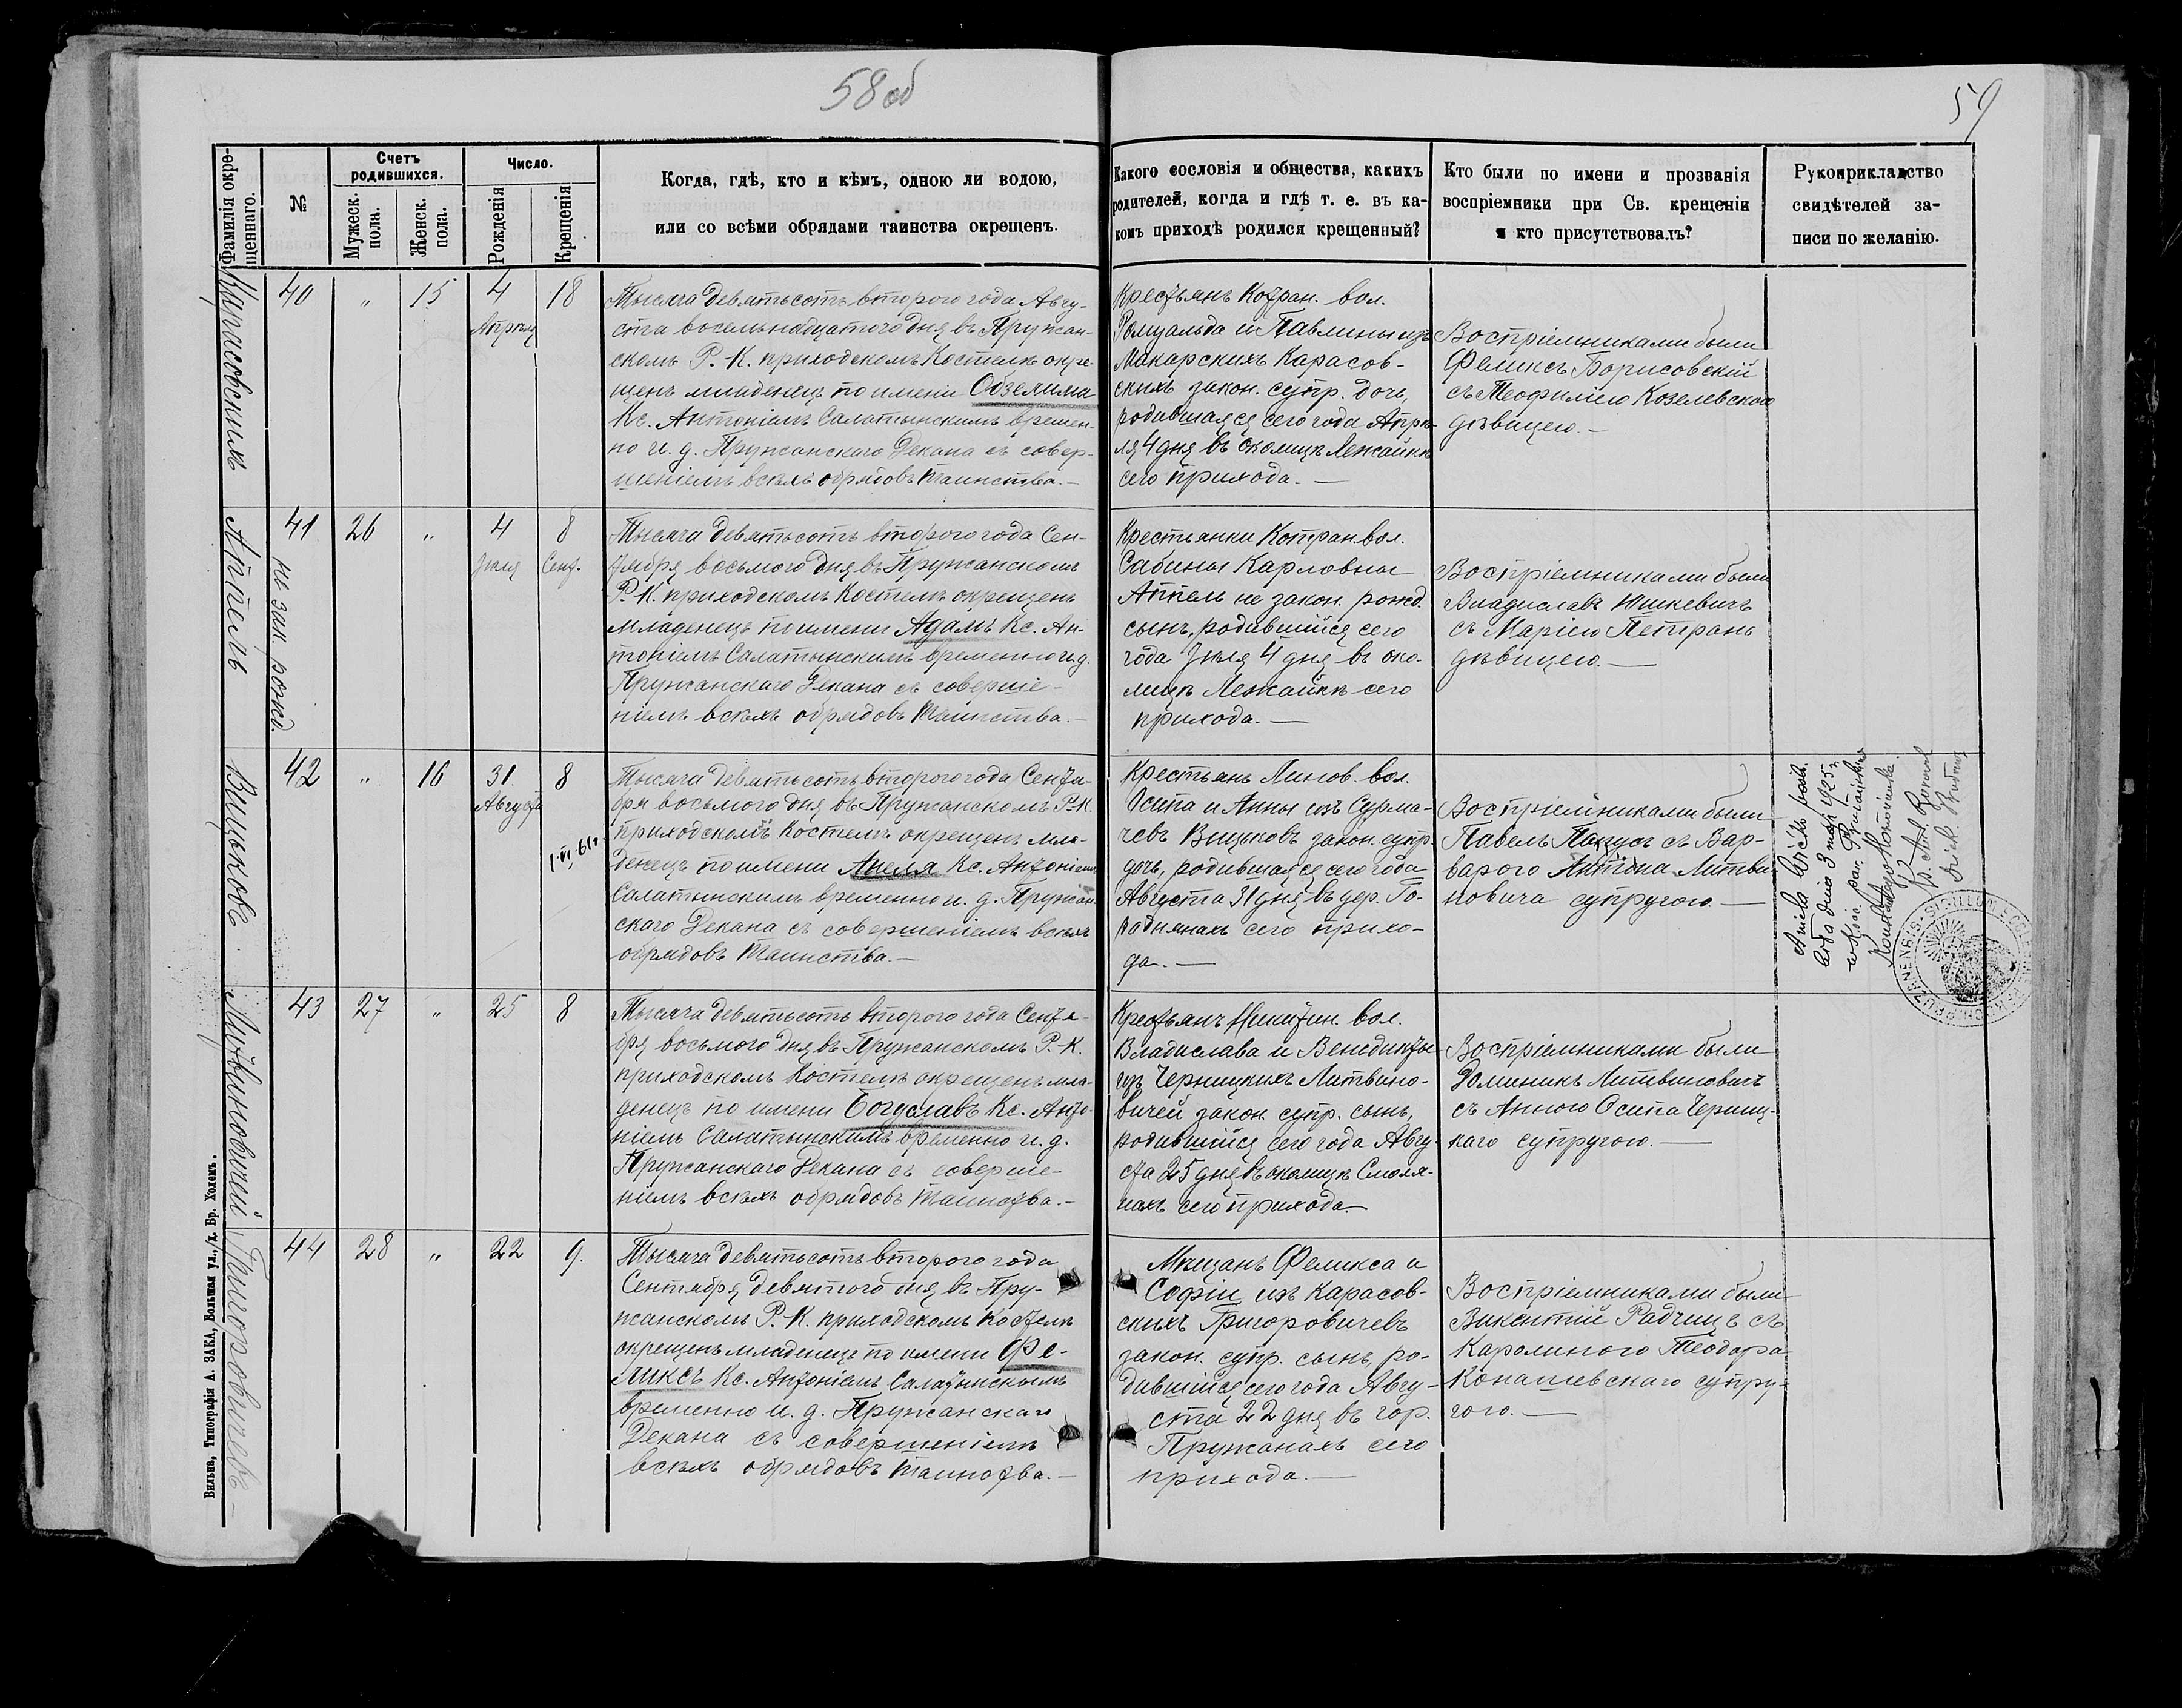 58 об
59
Фамилія окре-
щеннаго.
№
Счетъ
родившихся.
Мужеск.
пола.
Женск.
пола.
Число.
Рожденія
Крещенія
Когда, гдѣ, кто и кѣмъ, одною ли водою,
или со всѣми обрядами таинства окрещенъ.
Какого сословія и общества, какихъ
родителей, когда и гдѣ т. е. въ ка-
комъ приходѣ родился крещенный?
Кто были по имени и прозванія
воспріемники при Св. крещеніи
и кто присутствовалъ?
Рукоприкладство
свидѣтелей за-
писи по желанію.
40
"
15
4
Апрѣля
18
Тысяча девятьсотъ второго года Авгу-
ста восемнадцатого дня въ Пружан-
скомъ Р. К. приходскомъ Костелѣ окре-
щенъ младенецъ по имени
Кс. Антоніемъ Салатынскимъ времен-
но и. д. Пружанскаго Декана съ совер-
шеніемъ всѣхъ обрядовъ таинства. —
Крестьянъ Котран. вол.
Ромуальда и Павлины изъ
Макарскихъ Карасов-
скихъ закон. супр. дочь,
родившаяся сего года Апрѣ-
ля 4 дня въ околицѣ Лежайкѣ
сего прихода. —
Воспріемниками были
Феликсъ Борисовскій
съ Теофилією Козелевскою
дѣвицею. —
Аппель
41
не зак. рожд.
26
"
4
Іюля
8
Сент.
Тысяча девятьсотъ второго года Сен-
тября восьмого дня въ Пружанскомъ
Р. К. приходскомъ Костелѣ окрещенъ
младенецъ по имени Адамъ Кс. Ан-
тоніемъ Салатынскимъ временно и. д.
Пружанскаго Декана съ соверше-
ніемъ всѣхъ обрядовъ таинства. —
Крестьянки Котран. вол.
Сабины Карловны
Аппель не закон. рожд.
сынъ, родившійся сего
года Іюля 4 дня въ око-
лицѣ Лежайкѣ сего
прихода. —
Воспріемниками были
Владиславъ Юшкевичъ
съ Марією Петрань
дѣвицею. —
42
"
16
31
Августа
8
Тысяча девятьсотъ второго года Сентя-
бря восьмого дня въ Пружанскомъ Р. К.
приходскомъ Костелѣ окрещенъ мла-
денецъ по имени Анеля Кс. Антоніемъ
Салатынскимъ временно и. д. Пружан-
скаго Декана съ совершеніемъ всѣхъ
обрядовъ таинства. —
Крестьянъ Линов. вол.
Осипа и Анны изъ Сурма-
чевъ закон. супр.
дочь, родившаяся сего года
Августа 31 дня въ дер. Го-
роднянахъ сего прихо-
да. —
Воспріемниками были
Павелъ съ Вар-
варою Антона Литви-
новича супругою. —
43
27
"
25
8
Тысяча девятьсотъ второго года Сентя-
бря восьмого дня въ Пружанскомъ Р. К.
приходскомъ Костелѣ окрещенъ мла-
денецъ по имени Богуславъ Кс. Анто-
ніемъ Салатынскимъ временно и. д.
Пружанскаго Декана съ соверше-
ніемъ всѣхъ обрядовъ таинства. —
Крестьянъ Микитин. вол.
Владислава и Бенедикты
изъ Черницкихъ Литвино-
вичей закон. супр. сынъ,
родившійся сего года Авгу-
ста 25 дня въ околицѣ Смоля-
нахъ сего прихода.
Воспріемниками были
Доминикъ Литвиновичъ
съ Анною Осипа Черниц-
каго супругою. —
Григоровичевъ —
44
28
"
22
9.
Тысяча девятьсотъ второго года
Сентября девятого дня въ Пру-
жанскомъ Р. К. приходскомъ Костелѣ
окрещенъ младенецъ по имени Фе-
ликсъ Кс. Антоніемъ Салатынскимъ
временно и. д. Пружанскаго
Декана съ совершеніемъ
всѣхъ обрядовъ таинства. —
Мѣщанъ Феликса и
Софіи изъ Карасов-
скихъ Григоровичевъ
закон. супр. сынъ, ро-
дившійся сего года Авгу-
ста 22 дня въ гор.
Пружанахъ сего
прихода. —
Воспріемниками были
Викентій Радчицъ съ
Каролиною Теодора
Конашевскаго супру-
гою. —
Вильна, Типографія А. ЗАКА, Большая ул., д. Бр. Холемъ.